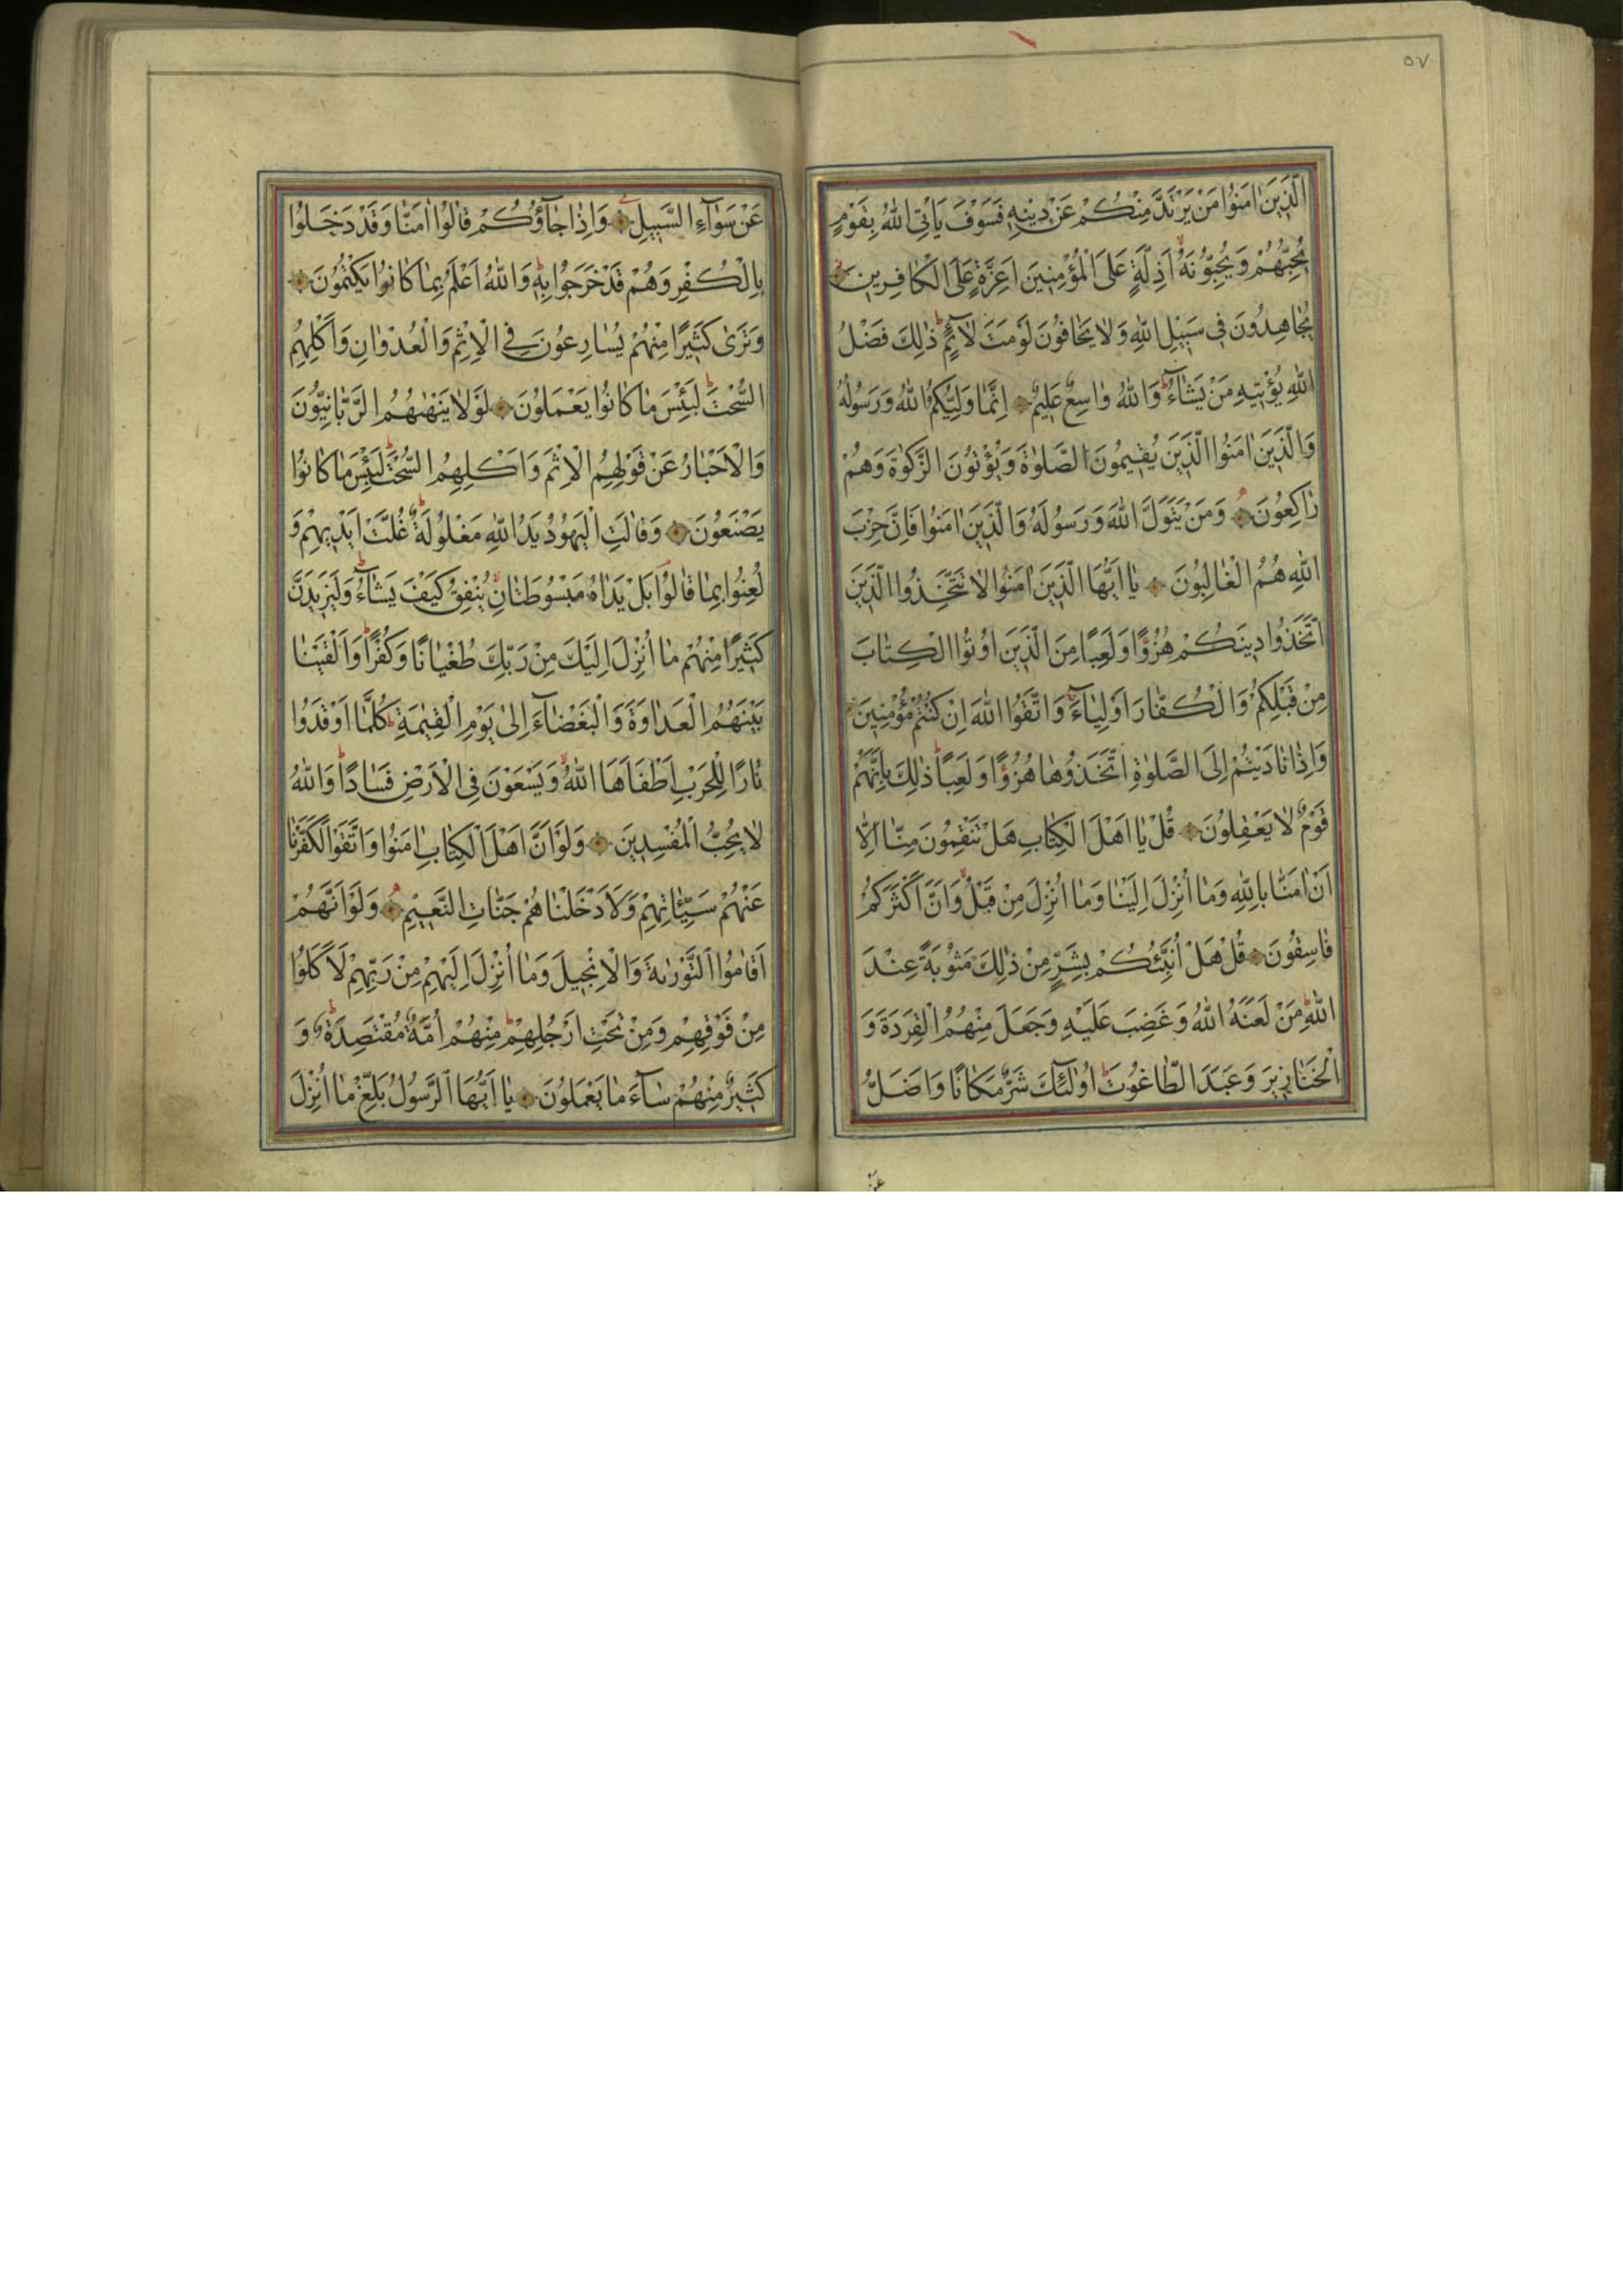 ٥٧
الَّذِينَ اٰمَنُوا مَنْ يَرْتَدَّ مِنْكُمْ عَنْ دِينِهِ فَسَوْفَ يَأْتِي اللّٰهُ بِقَوْمٍ
يُحِبُّهُمْ وَيُحِبُّونَهُ اَذِلَّةٍ عَلَى الْمُؤْمِنِينَ اَعِزَّةٍ عَلَى الْكَافِرِينَ
يُجَاهِدُونَ فِي سَبِيلِ اللّٰهِ وَلَا يَخَافُونَ لَوْمَةَ لَآئِمٍ ذٰلِكَ فَضْلُ
اللّٰهِ يُؤْتِيهِ مَنْ يَشَآءُ وَاللّٰهُ وَاسِعٌ عَلِيمٌ اِنَّمَا وَلِيُّكُمُ اللّٰهُ وَرَسُولُهُ
وَالَّذِينَ اٰمَنُوا الَّذِينَ يُقِيمُونَ الصَّلٰوةَ وَيُؤْتُونَ الزَّكٰوةَ وَهُمْ
رَاكِعُونَ وَمَنْ يَتَوَلَّ اللّٰهَ وَرَسُولَهُ وَالَّذِينَ اٰمَنُوا فَاِنَّ حِزْبَ
اللّٰهِ هُمُ الْغَالِبُونَ يَا اَيُّهَا الَّذِينَ اٰمَنُوا لَا تَتَّخِذُوا الَّذِينَ
اتَّخَذُوا دِينَكُمْ هُزُوًا وَلَعِبًا مِنَ الَّذِينَ اُوتُوا الْكِتَابَ
مِنْ قَبْلِكُمْ وَالْكُفَّارَ اَوْلِيَآءَ وَاتَّقُوا اللّٰهَ اِنْ كُنْتُمْ مُؤْمِنِينَ
وَاِذَا نَادَيْتُمْ اِلَى الصَّلٰوةِ اتَّخَذُوهَا هُزُوًا وَلَعِبًا ذٰلِكَ بِاَنَّهُمْ
قَوْمٌ لَا يَعْقِلُونَ قُلْ يَا اَهْلَ الْكِتَابِ هَلْ تَنْقِمُونَ مِنَّا اِلَّا
اَنْ اٰمَنَّا بِاللّٰهِ وَمَا اُنْزِلَ اِلَيْنَا وَمَا اُنْزِلَ مِنْ قَبْلُ وَاَنَّ اَكْثَرَكُمْ
فَاسِقُونَ قُلْ هَلْ اُنَبِّئُكُمْ بِشَرٍّ مِنْ ذٰلِكَ مَثُوبَةً عِنْدَ
اللّٰهِ مَنْ لَعَنَهُ اللّٰهُ وَغَضِبَ عَلَيْهِ وَجَعَلَ مِنْهُمُ الْقِرَدَةَ وَ
الْخَنَازِيرَ وَعَبَدَ الطَّاغُوتَ اُولٰئِكَ شَرٌّ مَكَانًا وَاَضَلُّ
عَنْ
عَنْ سَوَآءِ السَّبِيلِ وَاِذَا جَآؤُكُمْ قَالُوا اٰمَنَّا وَقَدْ دَخَلُوا
بِالْكُفْرِ وَهُمْ قَدْ خَرَجُوا بِهِ وَاللّٰهُ اَعْلَمُ بِمَا كَانُوا يَكْتُمُونَ
وَتَرٰى كَثِيرًا مِنْهُمْ يُسَارِعُونَ فِي الْاِثْمِ وَالْعُدْوَانِ وَاَكْلِهِمُ
السُّحْتَ لَبِئْسَ مَا كَانُوا يَعْمَلُونَ لَوْلَا يَنْهٰيهُمُ الرَّبَّانِيُّونَ
وَالْاَحْبَارُ عَنْ قَوْلِهِمُ الْاِثْمَ وَاَكْلِهِمُ السُّحْتَ لَبِئْسَ مَا كَانُوا
يَصْنَعُونَ وَقَالَتِ الْيَهُودُ يَدُ اللّٰهِ مَغْلُولَةٌ غُلَّتْ اَيْدِيهِمْ وَ
لُعِنُوا بِمَا قَالُوا بَلْ يَدَاهُ مَبْسُوطَتَانِ يُنْفِقُ كَيْفَ يَشَآءُ وَلَيَزِيدَنَّ
كَثِيرًا مِنْهُمْ مَا اُنْزِلَ اِلَيْكَ مِنْ رَبِّكَ طُغْيَانًا وَكُفْرًا وَاَلْقَيْنَا
بَيْنَهُمُ الْعَدَاوَةَ وَالْبَغْضَآءَ اِلٰى يَوْمِ الْقِيٰمَةِ كُلَّمَا اَوْقَدُوا
نَارًا لِلْحَرْبِ اَطْفَاَهَا اللّٰهُ وَيَسْعَوْنَ فِي الْاَرْضِ فَسَادًا وَاللّٰهُ
لَا يُحِبُّ الْمُفْسِدِينَ وَلَوْ اَنَّ اَهْلَ الْكِتَابِ اٰمَنُوا وَاتَّقَوْا لَكَفَّرْنَا
عَنْهُمْ سَيِّئَاتِهِمْ وَلَاَدْخَلْنَاهُمْ جَنَّاتِ النَّعِيمِ وَلَوْ اَنَّهُمْ
اَقَامُوا التَّوْرٰيةَ وَالْاِنْجِيلَ وَمَا اُنْزِلَ اِلَيْهِمْ مِنْ رَبِّهِمْ لَاَكَلُوا
مِنْ فَوْقِهِمْ وَمِنْ تَحْتِ اَرْجُلِهِمْ مِنْهُمْ اُمَّةٌ مُقْتَصِدَةٌ وَ
كَثِيرٌ مِنْهُمْ سَآءَ مَا يَعْمَلُونَ يَا اَيُّهَا الرَّسُولُ بَلِّغْ مَا اُنْزِلَ